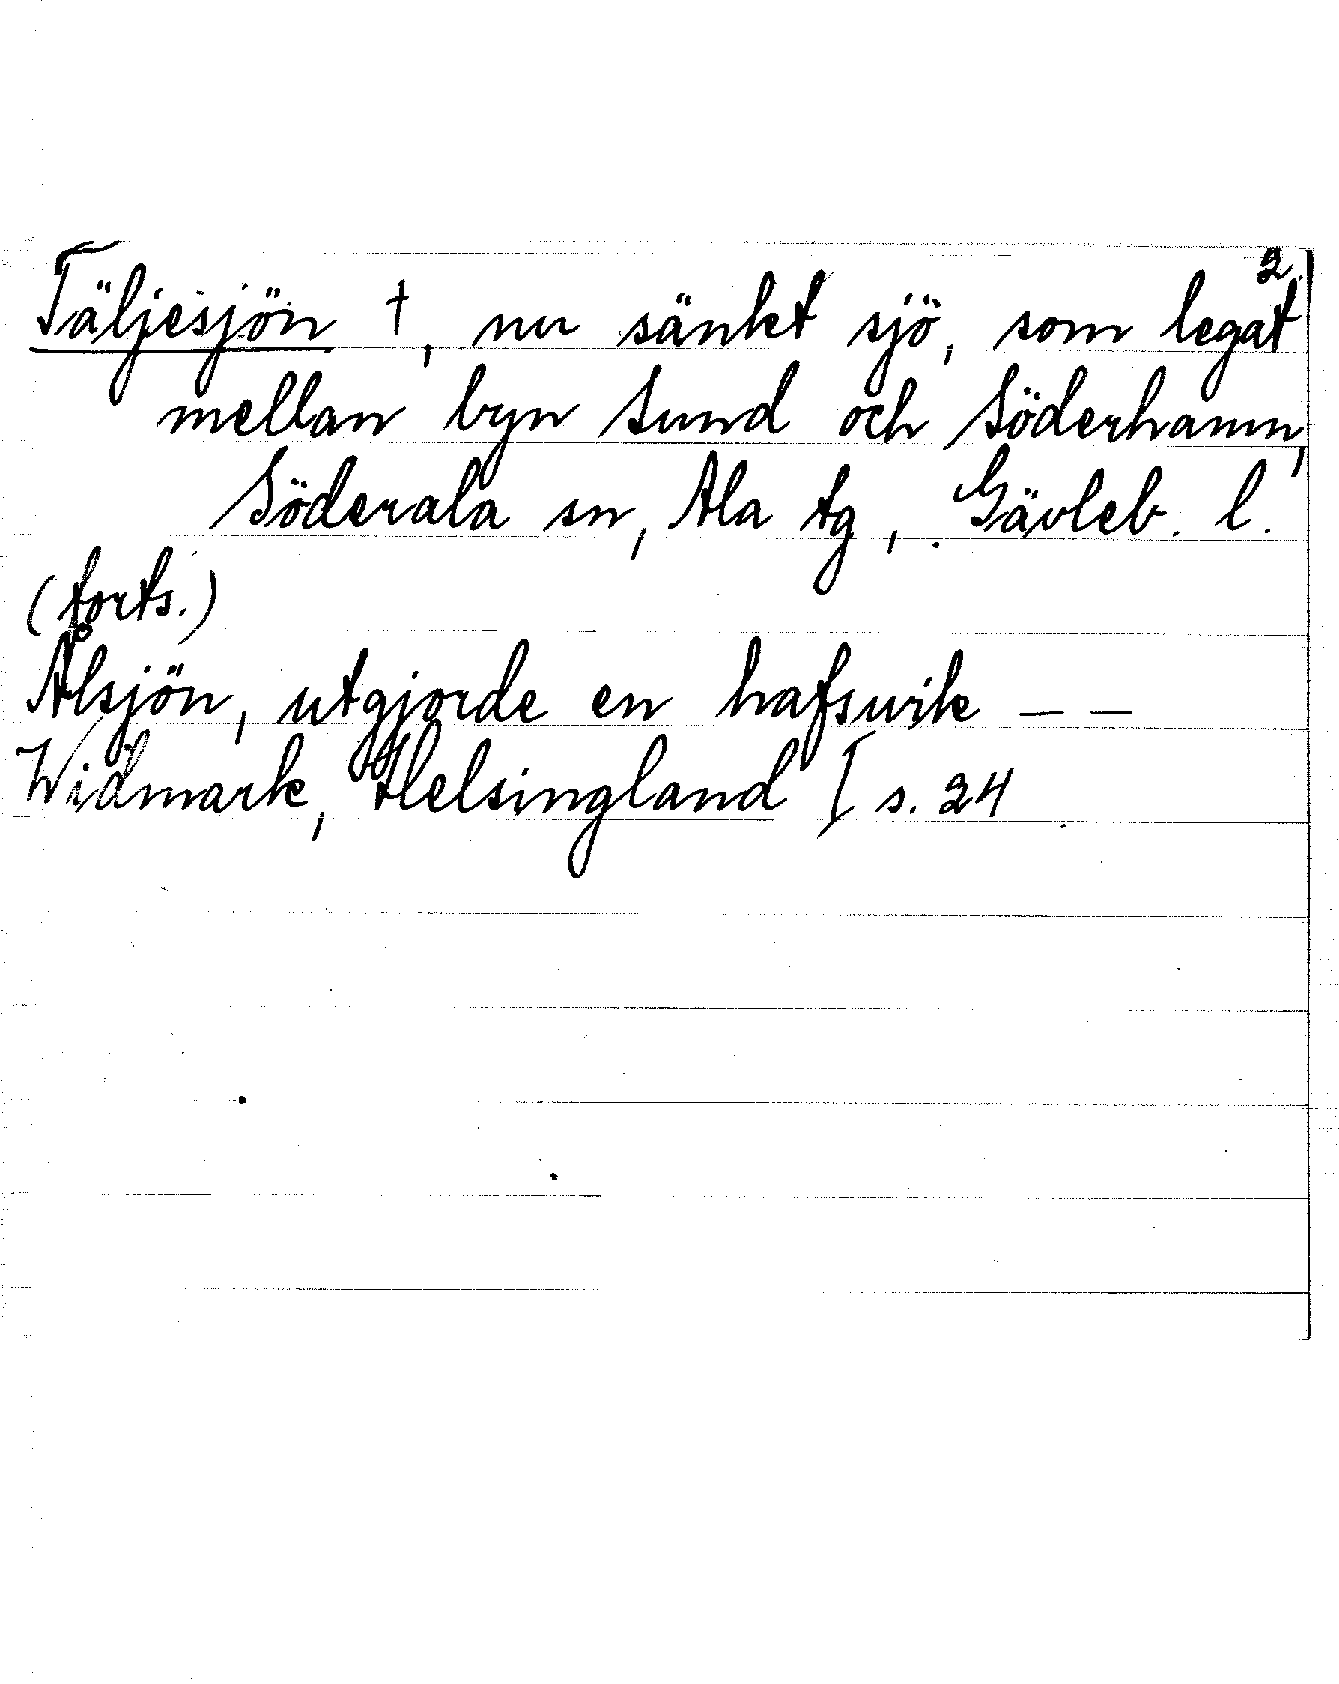 2.
Täljesjön †, nu sänkt sjö, som legat
mellan byn Sund och Söderhamn,
Söderala sn, Ala tg, Gävleb. l.
(forts.)
Ålsjön, utgjorde en hafsvik — —
Widmark, Helsingland I s. 24